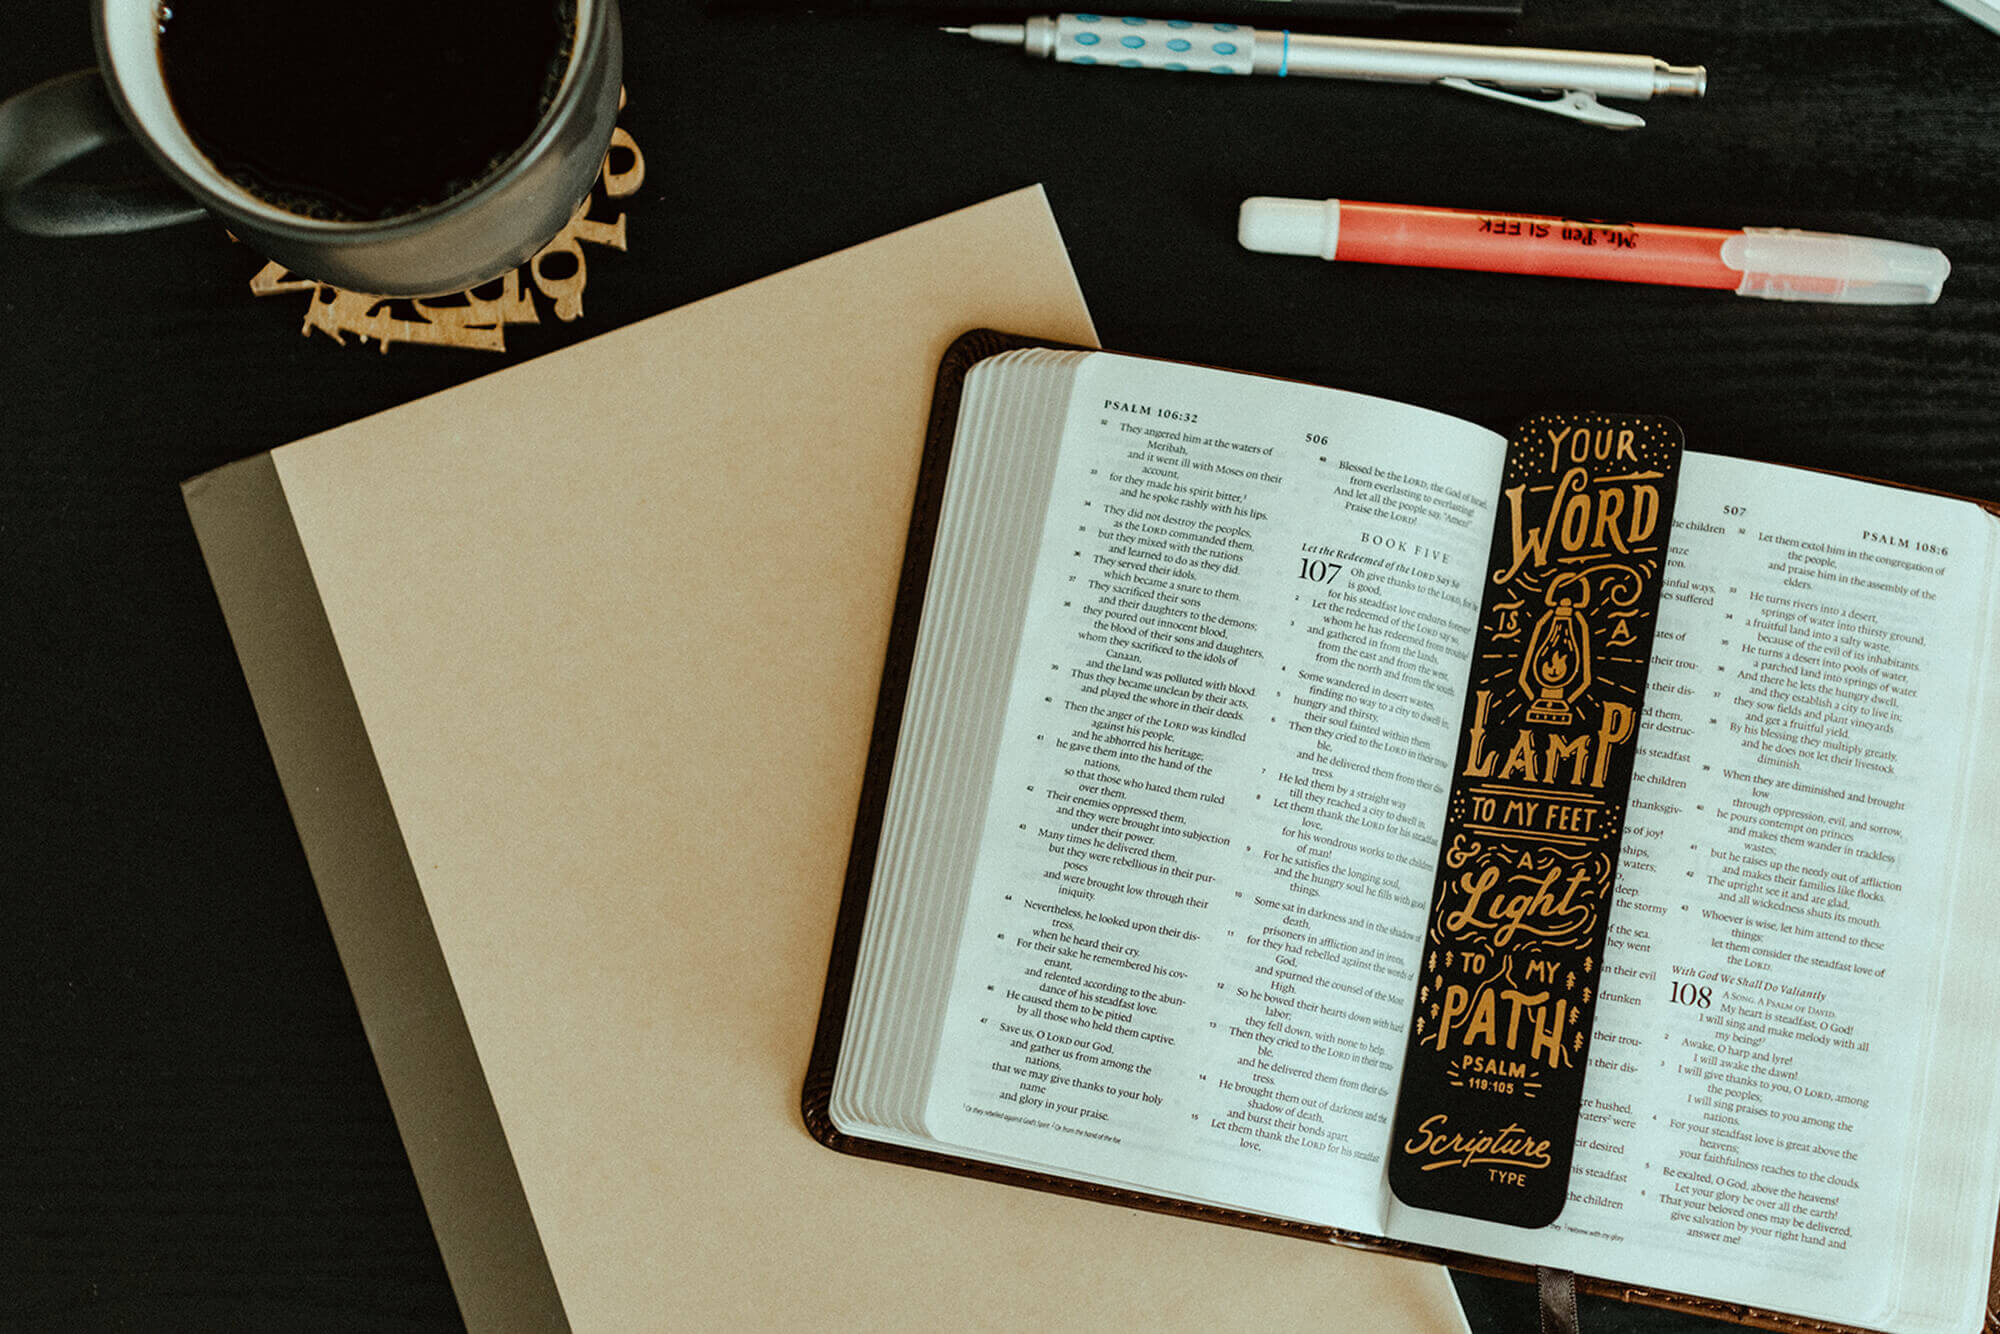 Mr. Pen SLEEK
PSALM 106:32
506
32 They angered him at the waters of
Meribah,
and it went ill with Moses on their
account,
33 for they made his spirit bitter,¹
and he spoke rashly with his lips.
34 They did not destroy the peoples,
as the LORD commanded them,
35 but they mixed with the nations
and learned to do as they did.
36 They served their idols,
which became a snare to them.
37 They sacrificed their sons
and their daughters to the demons;
38 they poured out innocent blood,
the blood of their sons and daughters,
whom they sacrificed to the idols of
Canaan,
and the land was polluted with blood.
39 Thus they became unclean by their acts,
and played the whore in their deeds.
40 Then the anger of the LORD was kindled
against his people,
and he abhorred his heritage;
41 he gave them into the hand of the
nations,
so that those who hated them ruled
over them.
42 Their enemies oppressed them,
and they were brought into subjection
under their power.
43 Many times he delivered them,
but they were rebellious in their pur-
poses
and were brought low through their
iniquity.
44 Nevertheless, he looked upon their dis-
tress,
when he heard their cry.
45 For their sake he remembered his cov-
enant,
and relented according to the abun-
dance of his steadfast love.
46 He caused them to be pitied
by all those who held them captive.
47 Save us, O LORD our God,
and gather us from among the
nations,
that we may give thanks to your holy
name
and glory in your praise.
¹ Or they rebelled against God's Spirit ² Or from the hand of the foe
48 Blessed be the LORD, the God of Israel,
from everlasting to everlasting!
And let all the people say, "Amen!"
Praise the LORD!
BOOK FIVE
Let the Redeemed of the LORD Say So
107 Oh give thanks to the LORD, for he
is good,
for his steadfast love endures forever!
2 Let the redeemed of the LORD say so,
whom he has redeemed from trouble
3 and gathered in from the lands,
from the east and from the west,
from the north and from the south.
4 Some wandered in desert wastes,
finding no way to a city to dwell in;
5 hungry and thirsty,
their soul fainted within them.
6 Then they cried to the LORD in their trou-
ble,
and he delivered them from their dis-
tress.
7 He led them by a straight way
till they reached a city to dwell in.
8 Let them thank the LORD for his steadfast
love,
for his wondrous works to the children
of man!
9 For he satisfies the longing soul,
and the hungry soul he fills with good
things.
10 Some sat in darkness and in the shadow of
death,
prisoners in affliction and in irons,
11 for they had rebelled against the words of
God,
and spurned the counsel of the Most
High.
12 So he bowed their hearts down with hard
labor;
they fell down, with none to help.
13 Then they cried to the LORD in their trou-
ble,
and he delivered them from their dis-
tress.
14 He brought them out of darkness and the
shadow of death,
and burst their bonds apart.
15 Let them thank the LORD for his steadfast
love,
YOUR
WORD
IS A
LAMP
TO MY FEET
& A
Light
TO MY
PATH
PSALM
119:105
Scripture
TYPE
507
PSALM 108:6
he children
ron.
sinful ways,
es suffered
ates of
their trou-
their dis-
ed them,
eir destruc-
is steadfast
e children
thanksgiv-
s of joy!
ships,
waters;
deep
the stormy
of the sea.
hey went
in their evil
drunken
their trou-
their dis-
re hushed,
vaters² were
eir desired
is steadfast
he children
32 Let them extol him in the congregation of
the people,
and praise him in the assembly of the
elders.
33 He turns rivers into a desert,
springs of water into thirsty ground,
34 a fruitful land into a salty waste,
because of the evil of its inhabitants.
35 He turns a desert into pools of water,
a parched land into springs of water.
36 And there he lets the hungry dwell,
and they establish a city to live in;
37 they sow fields and plant vineyards
and get a fruitful yield.
38 By his blessing they multiply greatly,
and he does not let their livestock
diminish.
39 When they are diminished and brought
low
through oppression, evil, and sorrow,
40 he pours contempt on princes
and makes them wander in trackless
wastes;
41 but he raises up the needy out of affliction
and makes their families like flocks.
42 The upright see it and are glad,
and all wickedness shuts its mouth.
43 Whoever is wise, let him attend to these
things;
let them consider the steadfast love of
the LORD.
With God We Shall Do Valiantly
108 A SONG. A PSALM OF DAVID.
My heart is steadfast, O God!
I will sing and make melody with all
my being!¹
2 Awake, O harp and lyre!
I will awake the dawn!
3 I will give thanks to you, O LORD, among
the peoples;
I will sing praises to you among the
nations.
4 For your steadfast love is great above the
heavens;
your faithfulness reaches to the clouds.
5 Be exalted, O God, above the heavens!
Let your glory be over all the earth!
6 That your beloved ones may be delivered,
give salvation by your right hand and
answer me!